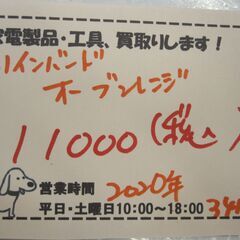 家電製品・工具、買取りします!
ツインバード
オーブンレンジ
11000(税込)
営業時間 2020年
平日・土曜日10:00~18:00